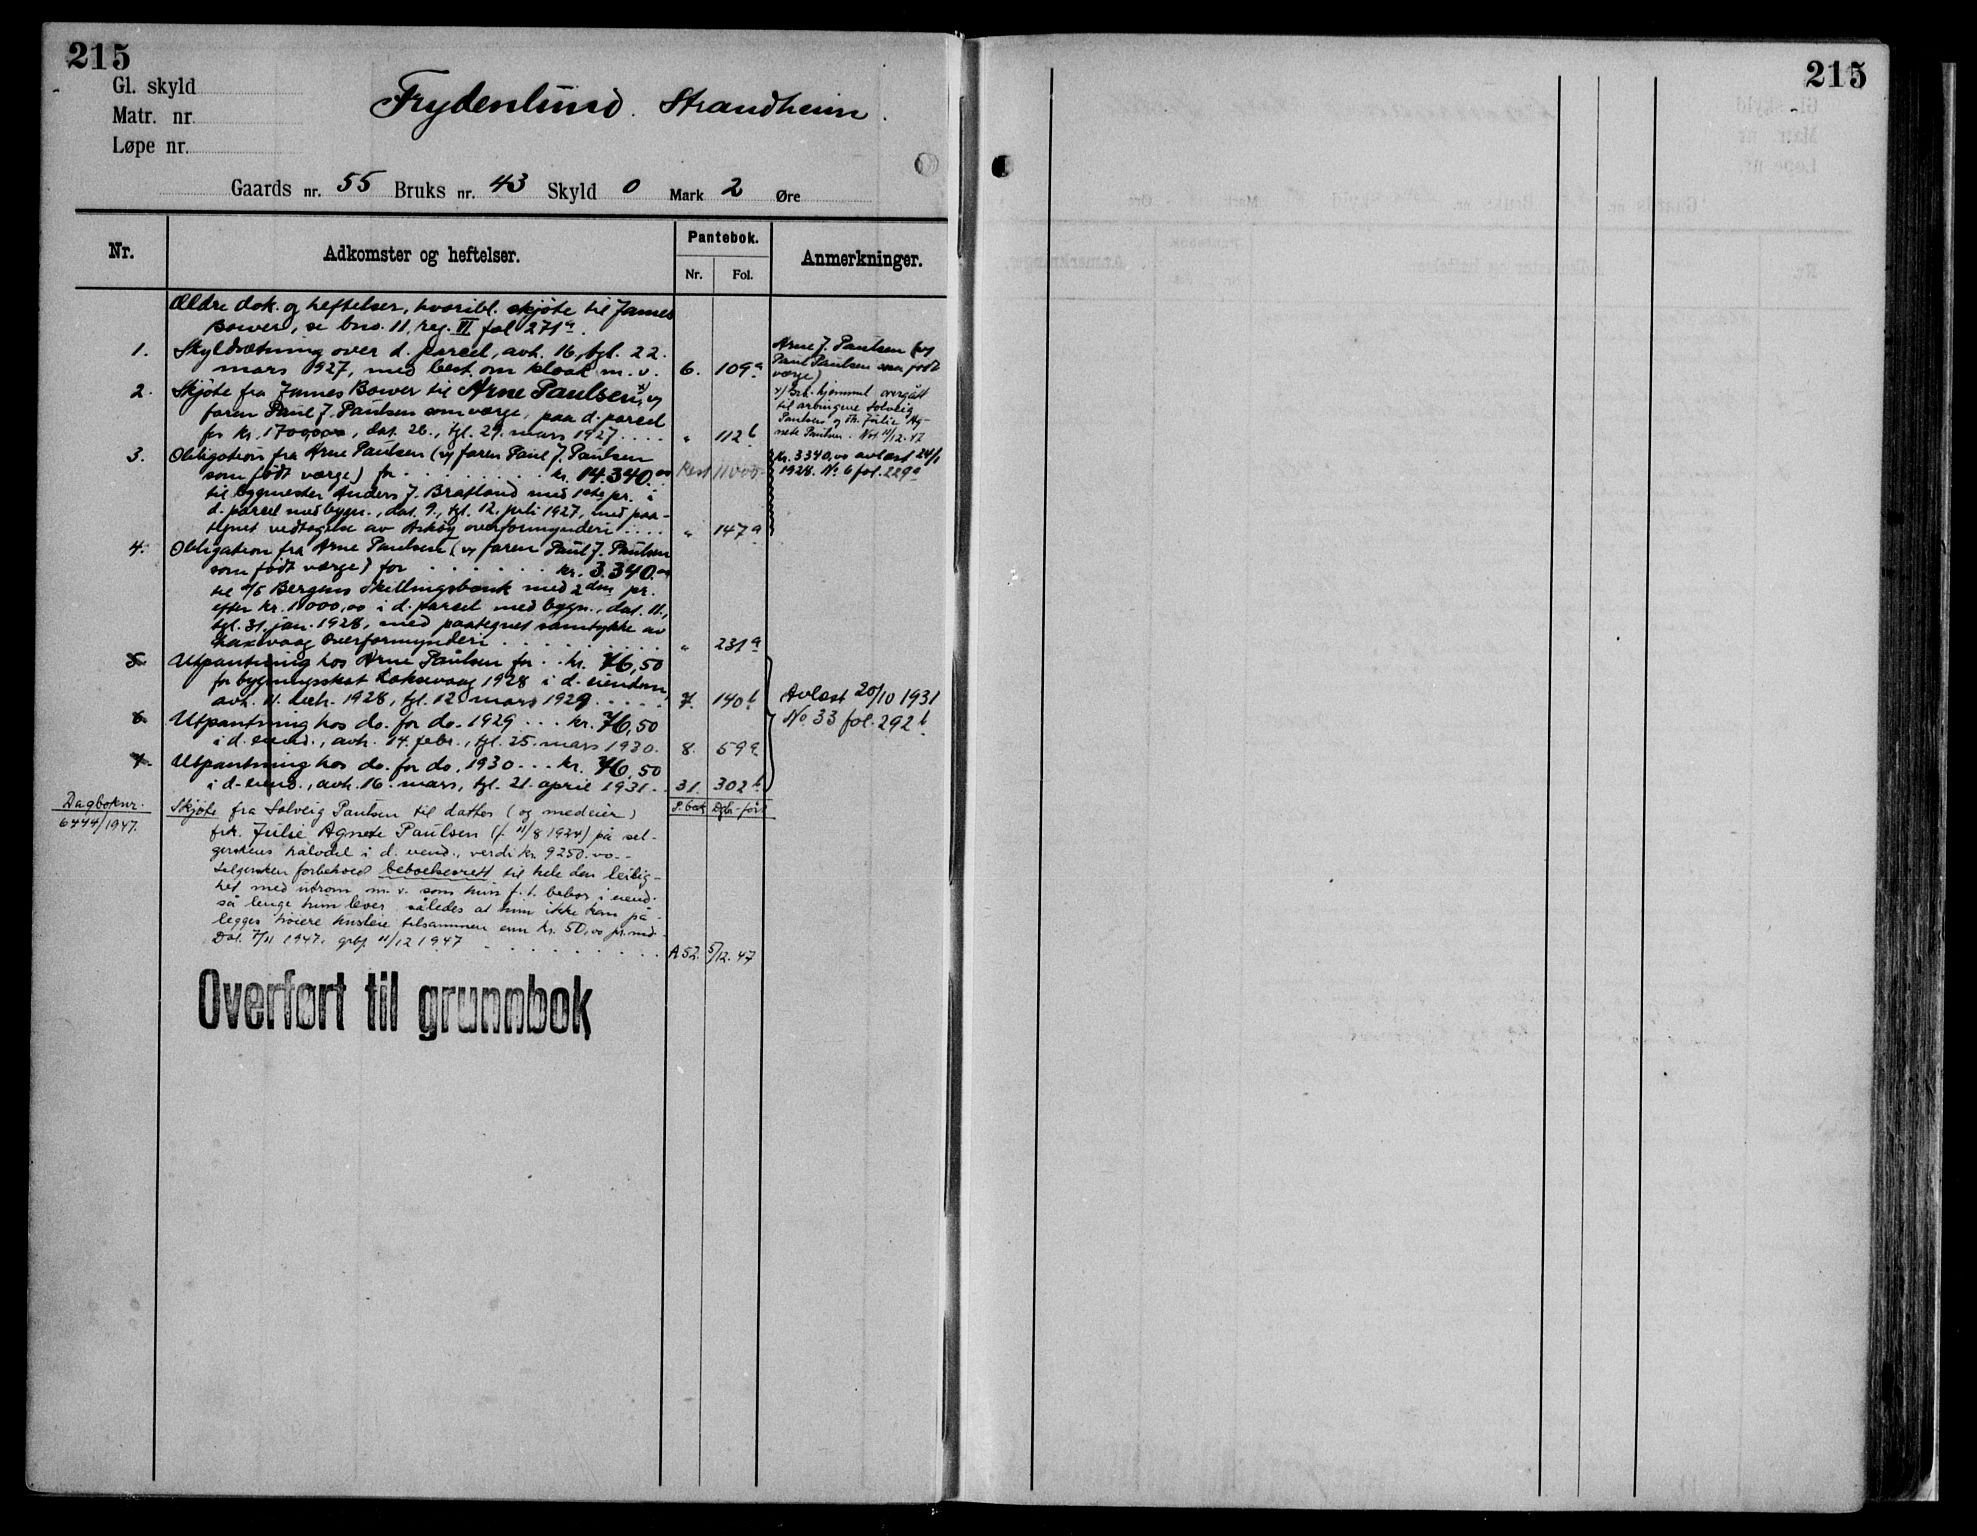 215
Gl. skyld
Matr. nr.
Løpe nr.
Frydenlund. Strandheim.
Gaards nr. 55 Bruks nr. 43 Skyld 0 Mark 2 Øre
Nr. Adkomster og heftelser. Pantebok. Nr. Fol. Anmerkninger.
Ældre dok. og heftelser, hvoribl. skjøte til James
Bower, se bno. 11, reg. VI fol 271a.
1. Skyldsætning over d. parcel, avh. 16, tgl. 22.
mars 1927, med best. om kloak m. v. 6. 109a
2. Skjøte fra James Bower til Arne Paulsen x) v/
faren Paul J. Paulsen som værge, paa d. parcel
for kr. 17000,00, dat. 26., tgl. 29. mars 1927 .... " 112b
3. Obligation fra Arne Paulsen (v/ faren Paul J. Paulsen
som født værge) for . . . . . . kr. 14.340.00 Rest 11000-
til bygmester Anders J. Bratland med 1ste pr. i
d. parcel med bygn., dat. 9., tgl. 12. juli 1927, med paa-
tegnet vedtagelse av Askøy overformynderi .... " 147a
4. Obligation fra Arne Paulsen (v/ faren Paul J. Paulsen
som født værge) for . . . . . . kr. 3.340.00
til A/S Bergens Skillingsbank med 2den pr.
efter kr. 11000,00 i d. parcel med bygn., dat. 11.,
tgl. 31. jan. 1928, med paategnet samtykke av
Laxevaag Overformynderi . . . . . . . " 231a
5. Utpantning hos Arne Paulsen for . . kr. 76,50
for bygningsskat Laksevaag 1928 i d. eiendom,
avh. 11. decbr. 1928, tgl. 12 mars 1929 . . . . . 7. 140b
6. Utpantning hos do. for do. 1929 . . . kr. 76,50
i d. eiend., avh. 14. febr., tgl. 25. mars 1930. 8. 59a
7. Utpantning hos do. for do. 1930 . . . kr. 76,50
i d. eiend., avh. 16. mars, tgl. 21. april 1931 . . 31. 302b
Dagboknr.
6444/1947.
P. bok Dgb-ført
Skjøte fra Solveig Paulsen til datter (og medeier)
frk. Julie Agnete Paulsen (f. 11/8 1924) på sel-
gerskens halvdel i d. eiend., verdi kr. 9250.00.-
Selgersken forbehold beboelsesrett til hele den leilig-
het med uterom m. v. som hun f. t. bebor i eiend.
så lenge hun lever, således at hun ikke kan på-
legges høiere husleie tilsammen enn kr. 50,00 pr. md.
Dat. 7/11 1947. grbf. 11/12 1947 . . . . . . . . A 52. 5/12. 47
Overført til grunnbok
Arne J. Paulsen (v/
Paul Paulsen som født
værge)
x) Grb. hjemmel overgått
til arvingene Solveig
Paulsen og Julie Ag-
nete Paulsen. Not. 11/12. 47
kr. 3340,00 avlæst 24/1
1928. No 6 fol. 229a
Avlæst 20/10 1931
No 33 fol. 292b
215